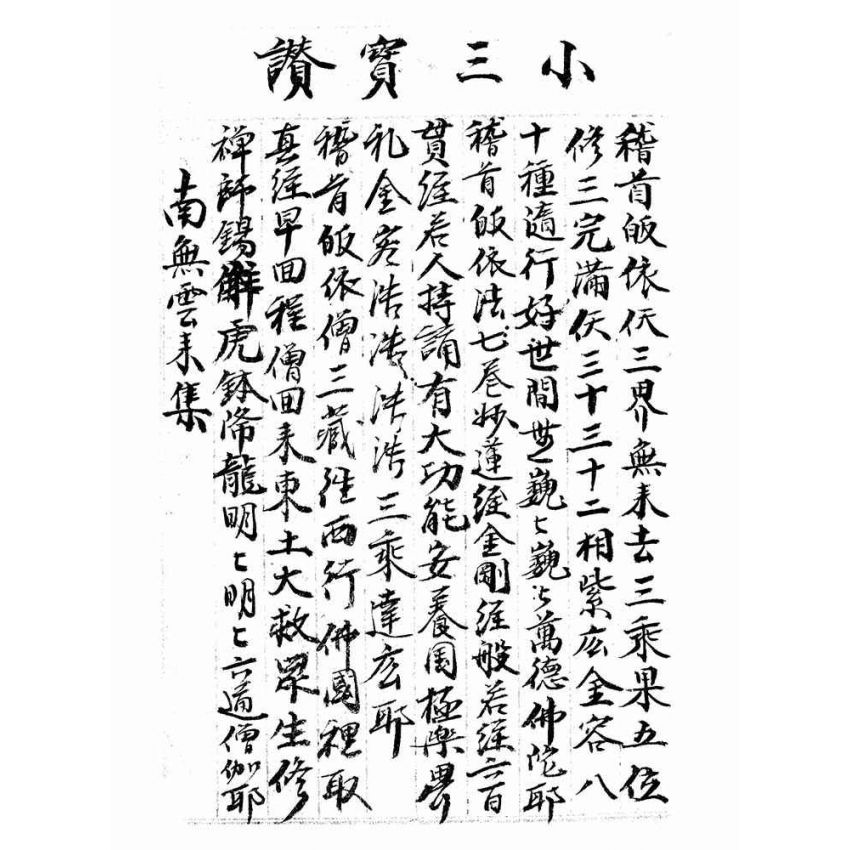 小三寳讃
稽首皈依仸三界無来去三乘果五位
修三完滿仸三十三十二相紫広金容八
十種隨行好世間世〻巍〻巍〻萬德佛陀耶
稽首皈依法七卷妙蓮經金剛經般若經六百
貫經若人持誦有大功能安養国極樂界
礼金容浩浩浩浩三乘達広耶
稽首皈依僧三藏徃西行佛國裡取
真經早回程僧回来東土大救眾生修
禅師錫解虎鉢降龍明〻明〻六道僧伽耶
南無雲来集